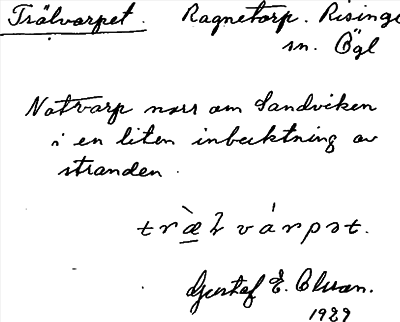 Trälvarpet. Ragnetorp. Risinge
sn. Ögl
Notvarp norr om Sandviken
i en liten inbuktning av
stranden.
træ̀lvárpət.
Gustaf E. Olsson.
1929